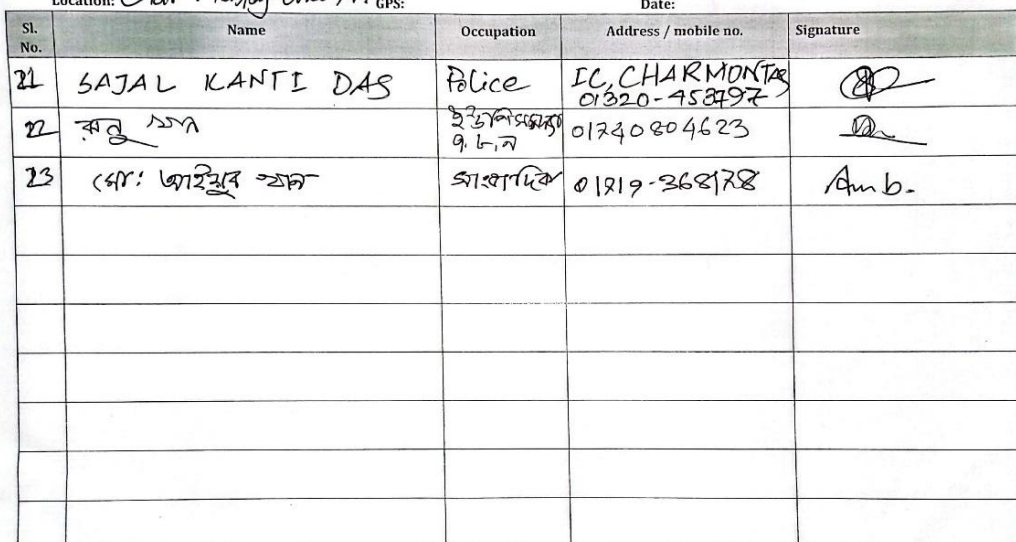 Location: Char GPS: Date:
Sl. No. Name Occupation Address / mobile no. Signature
21 SAJAL KANTI DAS Police IC, CHARMONTAZ
01320-453797
22 রুনু ইউপি সদস্য 01740804623
৭, ৮, ৯
23 মো: আইয়ুব খান সাংবাদিক 01719-368178